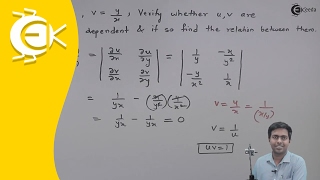 Ekeeda
, v = y/x ; Verify whether u, v are
dependent & if so find the relation between them.
= | ∂u/∂x ∂u/∂y ; ∂v/∂x ∂v/∂y | = | 1/y -x/y² ; -y/x² 1/x |
= 1/yx - (x/y²)(y/x²)
v = y/x = 1/(x/y)
= 1/yx - 1/yx = 0
v = 1/u
uv = 1